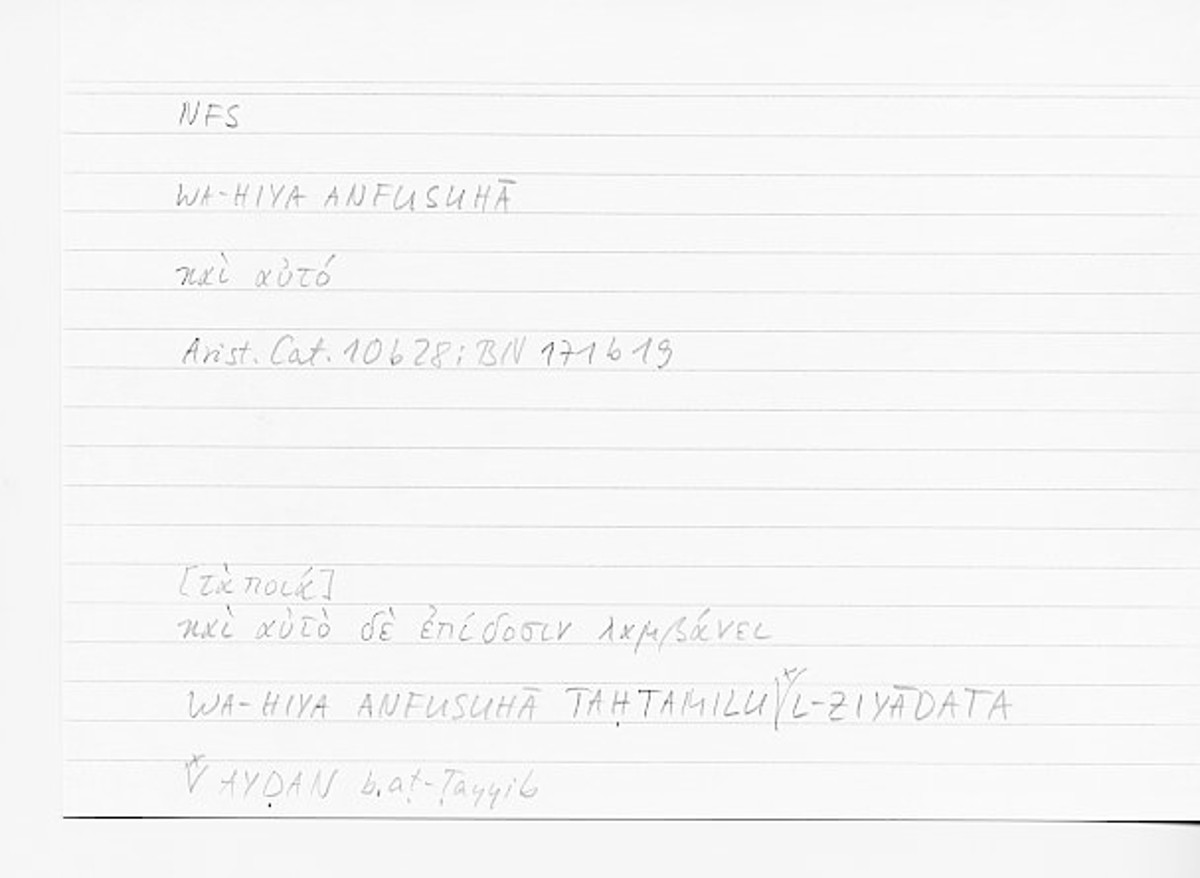 NFS
WA-HIYA ANFUSUHĀ
καὶ αὐτό
Arist. Cat. 10b28; BN 171b19
[τὰ ποιά]
καὶ αὐτὸ δὲ ἐπίδοσιν λαμβάνει
WA-HIYA ANFUSUHĀ TAḤTAMILU L-ZIYĀDATA
AYḌAN b. aṭ-Ṭayyib